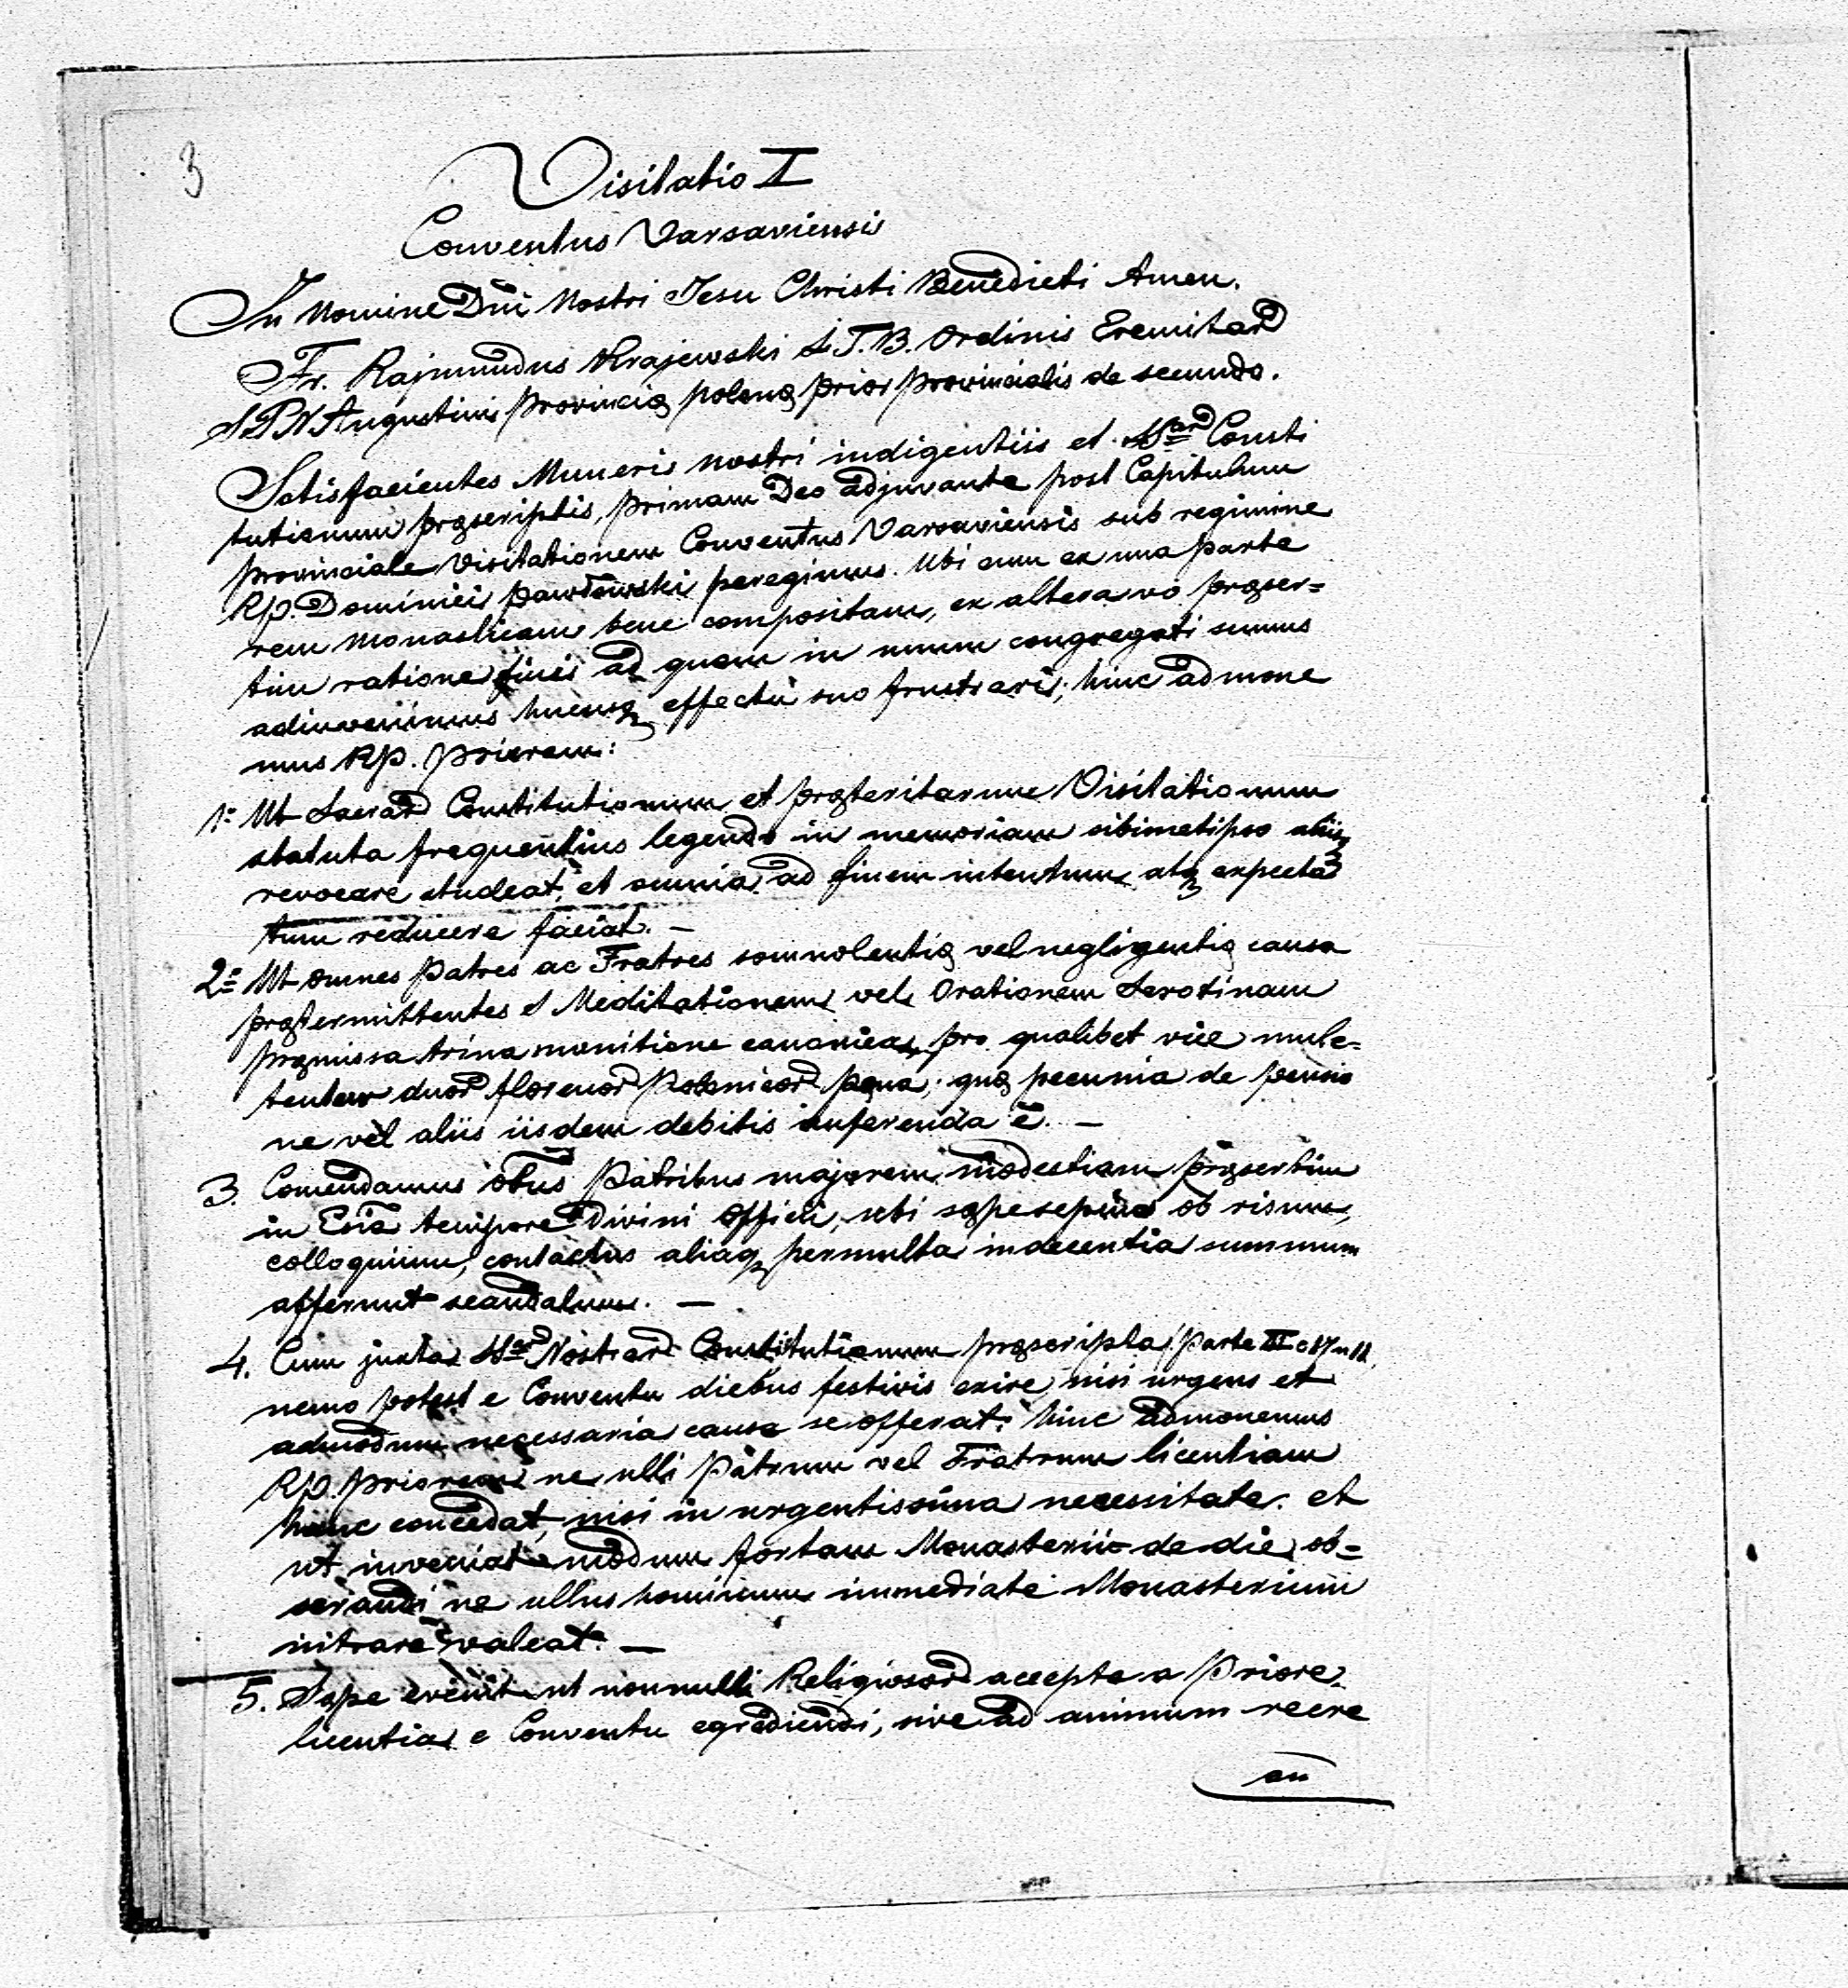 3
Visitatio I
Conventus Varsaviensis
In Nomine Dñi Nostri Jesu Christi Benedicti Amen.
Fr. Rajmundus Krajewski S.T.B. Ordinis Eremitarꝝ
SPN Augustini Provinciæ Polonæ Prior Provincialis de secundo.
Satisfacientes Muneris nostri indigentiis et SSarꝝ Consti
tutionum præscriptis, primam Deo adjuvante post Capitulum
Provinciale Visitationem Conventus Varsaviensis sub regimine
Rp. Dominici Pawłowski peregimus. Ubi cum ex una parte
rem Monasticam bene compositam, ex altera vo præser=
tim ratione finis ad quem in unum congregati sumus
adinvenimus hucusqꝫ effectu suo frustrari; hinc admone
mus Rp. Priorem:
1º Ut Sacrarꝝ Constitutionum et præteritarum Visitationum
statuta frequentius legendo in memoriam sibimetipso aliisqꝫ
revocare studeat, et omnia ad finem intentum atqꝫ expecta
tum reducere faciat. —
2º Ut omnes Patres ac Fratres somnolentiæ vel negligentiæ causa
prætermittentes S Meditationem vel Orationem Serotinam
præmissa trina monitione canonica, pro qualibet vice mulc=
tentur duorꝝ florenorꝝ Polonicorꝝ pæna; quæ pecunia de pensio
ne vel aliis iisdem debitis auferenda ē. —
3. Comendamus oībus Patribus majorem modestiam præsertim
in Ecīa tempore Divini Officii, ubi sæpesepius ob risum,
colloquium, contactus aliaqꝫ permulta indecentia summum
afferunt scandalum. —
4. Cum juxta SSarꝝ Nostrarꝝ Constitutionum præscripta /Parte III c 17 n 12
nemo potest e Conventu diebus festivis exire, nisi urgens et
admodum necessaria causa se offerat: hinc admonemus
Rp. Priorem ne ulli Patrum vel Fratrum licentiam
hanc concedat, nisi in urgentissima necessitate. et
ut inveniat modum portam Monasterii de die ob=
serandi ne ullus hominum immediate Monasterium
intrare valeat. —
5. Sæpe evenit ut nonnulli Religiosorꝝ accepta a Priore
licentia e Conventu egrediendi, sive ad animum recre
an